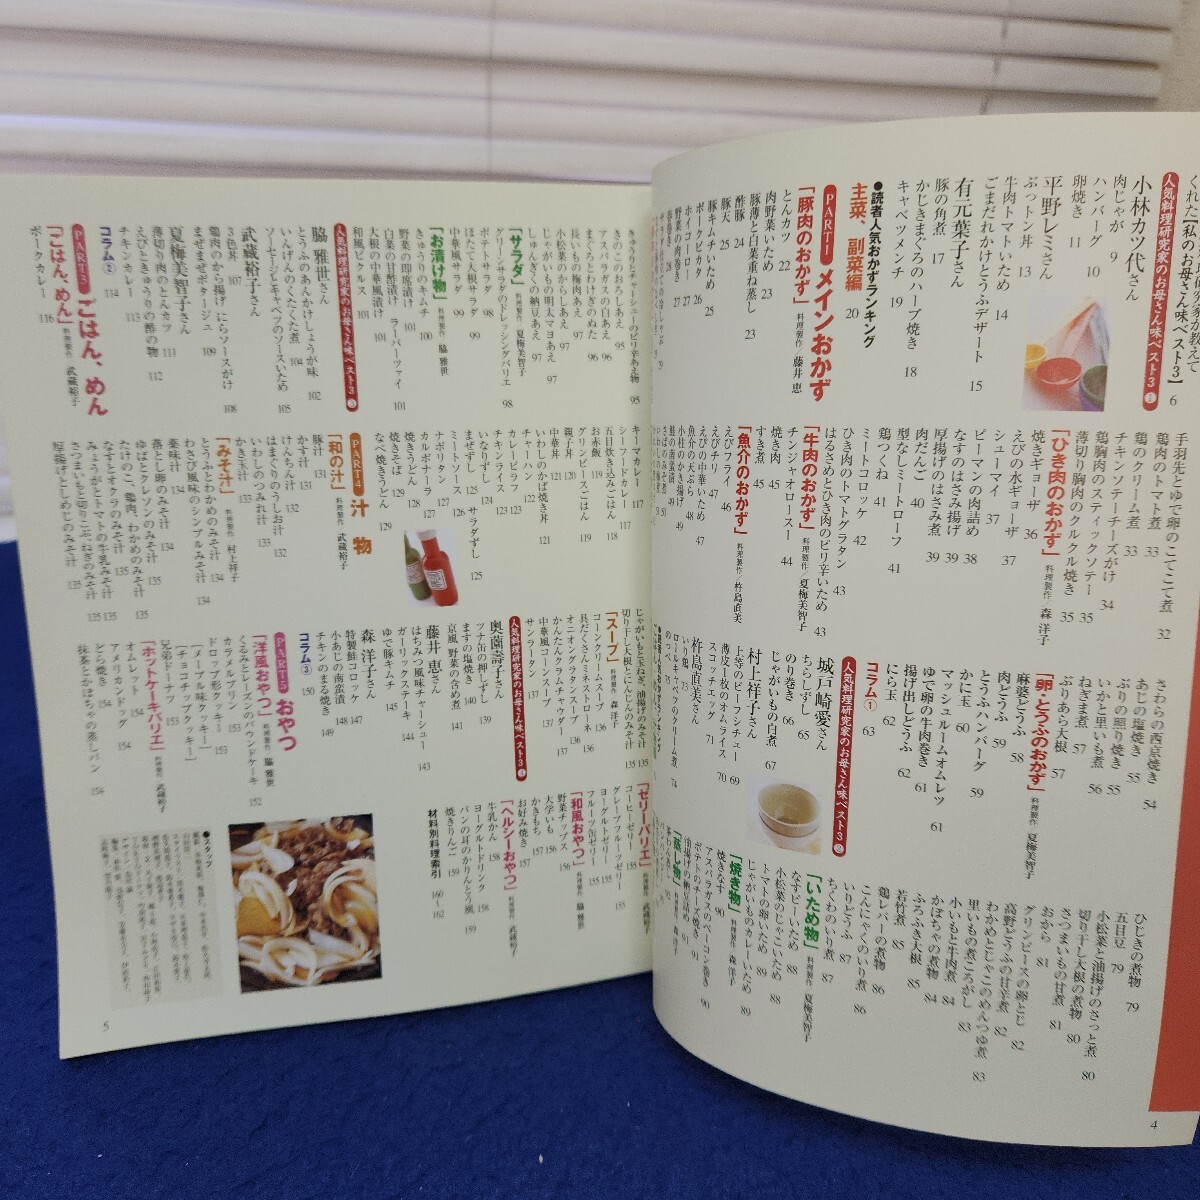 くれた「私のお母さん味ベスト3」 6
人気料理研究家のお母さん味ベスト3①
小林カツ代さん
肉じゃが 9
ハンバーグ 10
卵焼き 11
平野レミさん
ぶっトン丼 13
牛肉トマトいため 14
ごまだれかけとうふデザート 15
有元葉子さん
豚の角煮 17
かじきまぐろのハーブ焼き 18
キャベツメンチ 19
●読者人気おかずランキング
主菜、副菜編 20
PART1 メインおかず
「豚肉のおかず」 料理製作 藤井 恵
とんカツ 22
肉野菜いため 23
豚薄と白菜重ね蒸し 23
酢豚 24
豚天 25
豚キムチいため 25
ポークピカタ 26
ホイコーロー 27
野菜の肉巻き 27
手羽先とゆで卵のこてこて煮 32
鶏肉のトマト煮 33
鶏肉のクリーム煮 33
チキンソテーチーズがけ 34
鶏胸肉のスティックソテー 35
薄切り胸肉のクルクル焼き 35
「ひき肉のおかず」 料理製作 森 洋子
焼きギョーザ 36
えびの水ギョーザ 37
シューマイ 37
ピーマンの肉詰め 38
なすのはさみ揚げ 39
厚揚げのはさみ煮 39
肉だんご 40
型なしミートローフ 41
鶏つくね 41
ミートコロッケ 42
ひき肉のトマトグラタン 43
はるさめとひき肉のピリ辛いため 43
「牛肉のおかず」 料理製作 夏梅美智子
チンジャオロースー 44
焼き肉 45
すき煮 45
「魚介のおかず」 料理製作 杵島直美
えびフライ 46
えびチリ 47
えびの中華いため 47
魚介の天ぷら 48
小柱のかき揚げ 49
鮭の南蛮漬け 49
さばのみそ煮 50
さわらの西京焼き 54
あじの塩焼き 55
ぶりの照り焼き 55
いかと里いも煮 56
ねぎま煮 57
ぶりあら大根 57
「卵・とうふのおかず」 料理製作 夏梅美智子
麻婆どうふ 58
肉どうふ 59
とうふハンバーグ 59
かに玉 60
マッシュルームオムレツ 61
ゆで卵の牛肉巻き 61
揚げ出しどうふ 62
にら玉 62
コラム① 63
人気料理研究家のお母さん味ベスト3②
城戸崎愛さん
ちらしずし 65
のり巻き 66
じゃがいもの白煮 67
村上祥子さん
上等のビーフシチュー 69
薄皮一枚のオムライス 70
スコッチエッグ 71
杵島直美さん
いり鶏 73
ロールキャベツのクリーム煮 74
のっぺ 75
ひじきの煮物 79
五目豆 79
小松菜と油揚げのさっと煮 80
切り干し大根の煮物 80
さつまいもの甘煮 81
おから 81
グリンピースの卵とじ 82
高野どうふの甘辛煮 82
わかめとじゃこのめんつゆ煮 83
里いもの煮ころがし 83
小いもと牛肉煮 84
かぼちゃの煮物 84
ふろふき大根 85
若竹煮 85
鶏レバーの煮物 86
こんにゃくのいり煮 86
いりどうふ 87
ちくわのいり煮 87
「いため物」 料理製作 夏梅美智子
なすピーいため 88
小松菜のじゃこいため 88
トマトの卵いため 89
じゃがいものカレーいため 89
「焼き物」 料理製作 森 洋子
焼きなす 90
アスパラガスのベーコン巻き 90
ポテトのチーズ焼き 91
「蒸し物」 料理製作 森 洋子
茶わん蒸し 92
4
きゅうりとチャーシューのピリ辛あえ物 95
きのこのおろしあえ 95
アスパラガスの白あえ 96
まぐろとわけぎのぬた 96
小松菜のからしあえ 96
長いもの梅肉あえ 97
じゃがいもの明太マヨあえ 97
しゅんぎくの納豆あえ 97
「サラダ」 料理製作 夏梅美智子
グリーンサラダのドレッシングバリエ 98
ポテトサラダ 98
ほたて大根サラダ 99
中華風サラダ 99
「お漬け物」 料理製作 脇 雅世
きゅうりのキムチ 100
野菜の即席漬け 101
白菜の甘酢漬け ラーパーツァイ 101
大根の中華風漬け 101
和風ピクルス 101
人気料理研究家のお母さん味ベスト3③
脇 雅世さん
とうふのあんかけしょうが味 102
いんげんのくたくた煮 104
ソーセージとキャベツのソースいため 105
武蔵裕子さん
3色丼 107
鶏肉のから揚げ にらソースがけ 108
まぜまぜポタージュ 109
夏梅美智子さん
薄切り肉のとんカツ 111
えびときゅうりの酢の物 112
チキンカレー 113
コラム② 114
PART3 ごはん、めん
「ごはん、めん」 料理製作 武蔵裕子
ポークカレー 116
キーマカレー 117
シーフードカレー 117
五目炊き込みごはん 118
グリンピースごはん 119
お赤飯 119
親子丼 120
中華丼 121
いわしのかば焼き丼 121
チャーハン 122
カレーピラフ 123
チキンライス 123
いなりずし 124
まぜずし 125 サラダずし 125
ミートソース 126
ナポリタン 127
カルボナーラ 127
焼きうどん 128
焼きそば 129
なべ焼きうどん 129
PART4 汁 物
「和の汁」 料理製作 武蔵裕子
豚汁 131
かす汁 131
けんちん汁 132
はまぐりのうしお汁 132
いわしのつみれ汁 133
かき玉汁 133
「みそ汁」 料理製作 村上祥子
とうふとわかめのみそ汁 134
わさび風味のシンプルみそ汁 134
薬味汁 134
落とし卵のみそ汁 134
ゆばとクレソンのみそ汁 135
たけのこ、鶏肉、わかめのみそ汁 135
なすとオクラのみそ汁 135
みょうがとトマトの牛乳みそ汁 135
さつまいもと切りこぶ、ねぎのみそ汁 135
厚揚げとしめじのみそ汁 135
じゃがいもと玉ねぎ、油揚げのみそ汁 135
切り干し大根とにんじんのみそ汁 135
「スープ」 料理製作 森 洋子
コーンクリームスープ 136
具だくさんミネストローネ 136
オニオングラタンスープ 136
かんたんクラムチャウダー 137
中華風コーンスープ 137
サンラータン 137
人気料理研究家のお母さん味ベスト3④
奥薗壽子さん
ツナ缶の押しずし 139
ますの塩焼き 140
京風 野菜の含め煮 141
藤井 恵さん
はちみつ風味チャーシュー 143
ガーリックステーキ 144
ゆで豚キムチ 145
森 洋子さん
特製鮭コロッケ 147
小あじの南蛮漬け 148
チキンのまる焼き 149
コラム③ 150
PART5 おやつ
「洋風おやつ」 料理製作 脇 雅世
くるみとレーズンのパウンドケーキ 152
カラメルプリン 153
ドロップ形クッキー 153
［メープル味クッキー］
［チョコチップクッキー］
兄弟ドーナツ 153
「ホットケーキバリエ」 料理製作 武蔵裕子
オムレット 154
アメリカンドッグ 154
どら焼き 154
抹茶とかぼちゃの蒸しパン 154
「ゼリーバリエ」 料理製作 武蔵裕子
コーヒーゼリー 155
グレープフルーツゼリー 155
ヨーグルトゼリー 155
フルーツ缶ゼリー 155
「和風おやつ」 料理製作 脇 雅世
野菜チップス 156
大学いも 156
かきもち 157
お好み焼き 157
「ヘルシーおやつ」 料理製作 武蔵裕子
牛乳かん 158
ヨーグルトドリンク 158
パンの耳のかりんとう風 159
焼きりんご 159
材料別料理索引 160〜162
●スタッフ
5